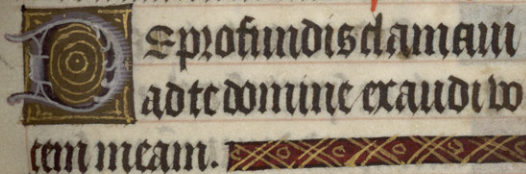 De profundis clamaui
ad te domine exaudi vo
cem meam.